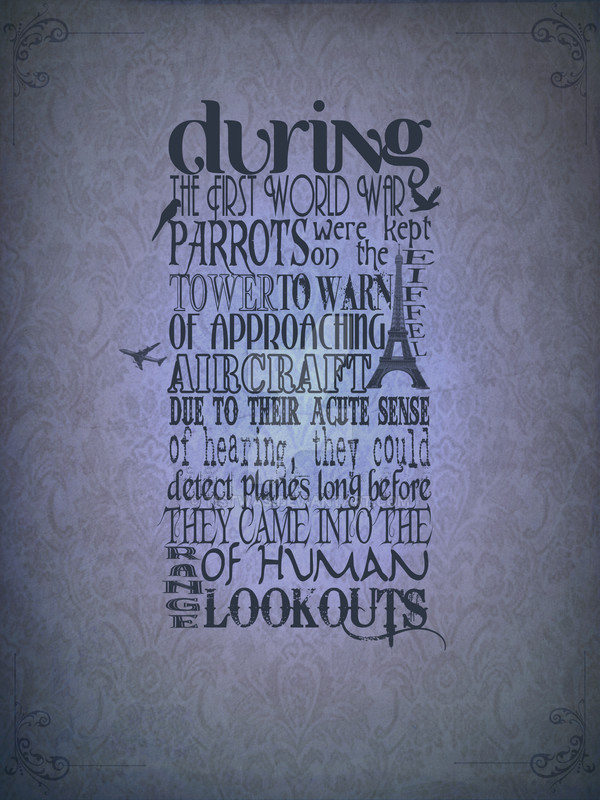 during
THE FIRST WORLD WAR
PARROTS were kept
on the EIFFEL
TOWER TO WARN
OF APPROACHING
AIRCRAFT
DUE TO THEIR ACUTE SENSE
of hearing, they could
detect planes long before
THEY CAME INTO THE
RANGE OF HUMAN
LOOKOUTS